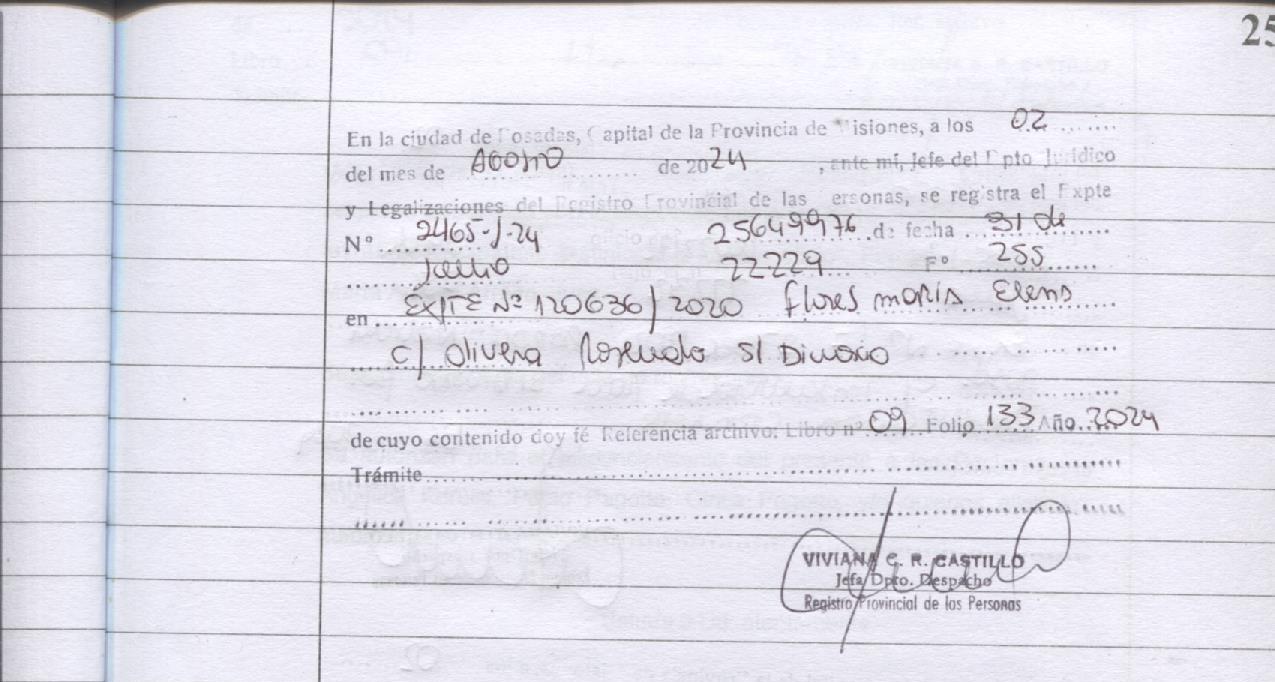 25
En la ciudad de Posadas, Capital de la Provincia de Misiones, a los 02
del mes de Agosto de 2024, ante mi, Jefe del Dpto Jurídico
y Legalizaciones del Registro Provincial de las ersonas, se registra el Expte
N° 2465-J-24 25649976 de fecha 31 de
Julio 22229 F° 255
en EXPTE Nº 120636/2020 Flores María Elena
c/ Olivera Rosendo s/ Divorcio
de cuyo contenido doy fé Referencia archivo: Libro nº 09 Folio 133 Año 2024
Trámite
VIVIANA C. R. CASTILLO
Jefa Dpto. Despacho
Registro Provincial de las Personas